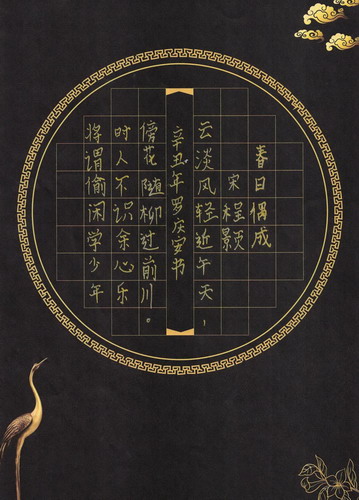 春日偶成
宋程颢
云淡风轻近午天，
辛丑年罗庆书
傍花随柳过前川。
时人不识余心乐
将谓偷闲学少年